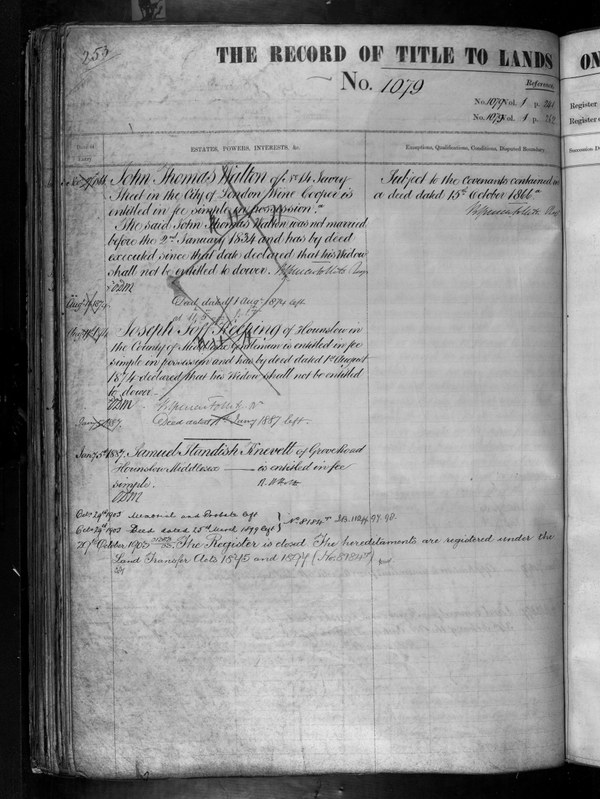 253
THE RECORD OF TITLE TO LANDS
No. 1079
Reference.
No. 1079 Vol. 1 p.
No. 1079 Vol. 1 p.
Date of Entry
ESTATES, POWERS, INTERESTS, &c.
Exceptions, Qualifications, Conditions, Disputed Boundary
John Thomas Walton of Savoy
Street in the City of London Wine Cooper is
entitled in fee simple in possession.
The said John Thomas Walton was not married
before the 2nd January 1834 and has by deed
executed since that date declared that his Widow
shall not be entitled to dower.
Subject to the Covenants contained in
a deed dated 15th October 1866
Deed dated 1 Augt 1874 left
Joseph Keeping of Hounslow in
the County of Middlesex Gentleman is entitled in fee
simple in possession and has by deed dated 1st August
1874 declared that his Widow shall not be entitled
to dower.
Deed dated Jany 1887 left.
Samuel Standish Knevett of Grove Road
Hounslow Middlesex is entitled in fee
simple.
Octr 29th 1903 Memorial and Probate left
Octr 29th 1903 Deed dated 25th March 1899 left
October 1903 The Register is closed The hereditaments are registered under the
Land Transfer Acts 1875 and 1897
ON
Register
Register